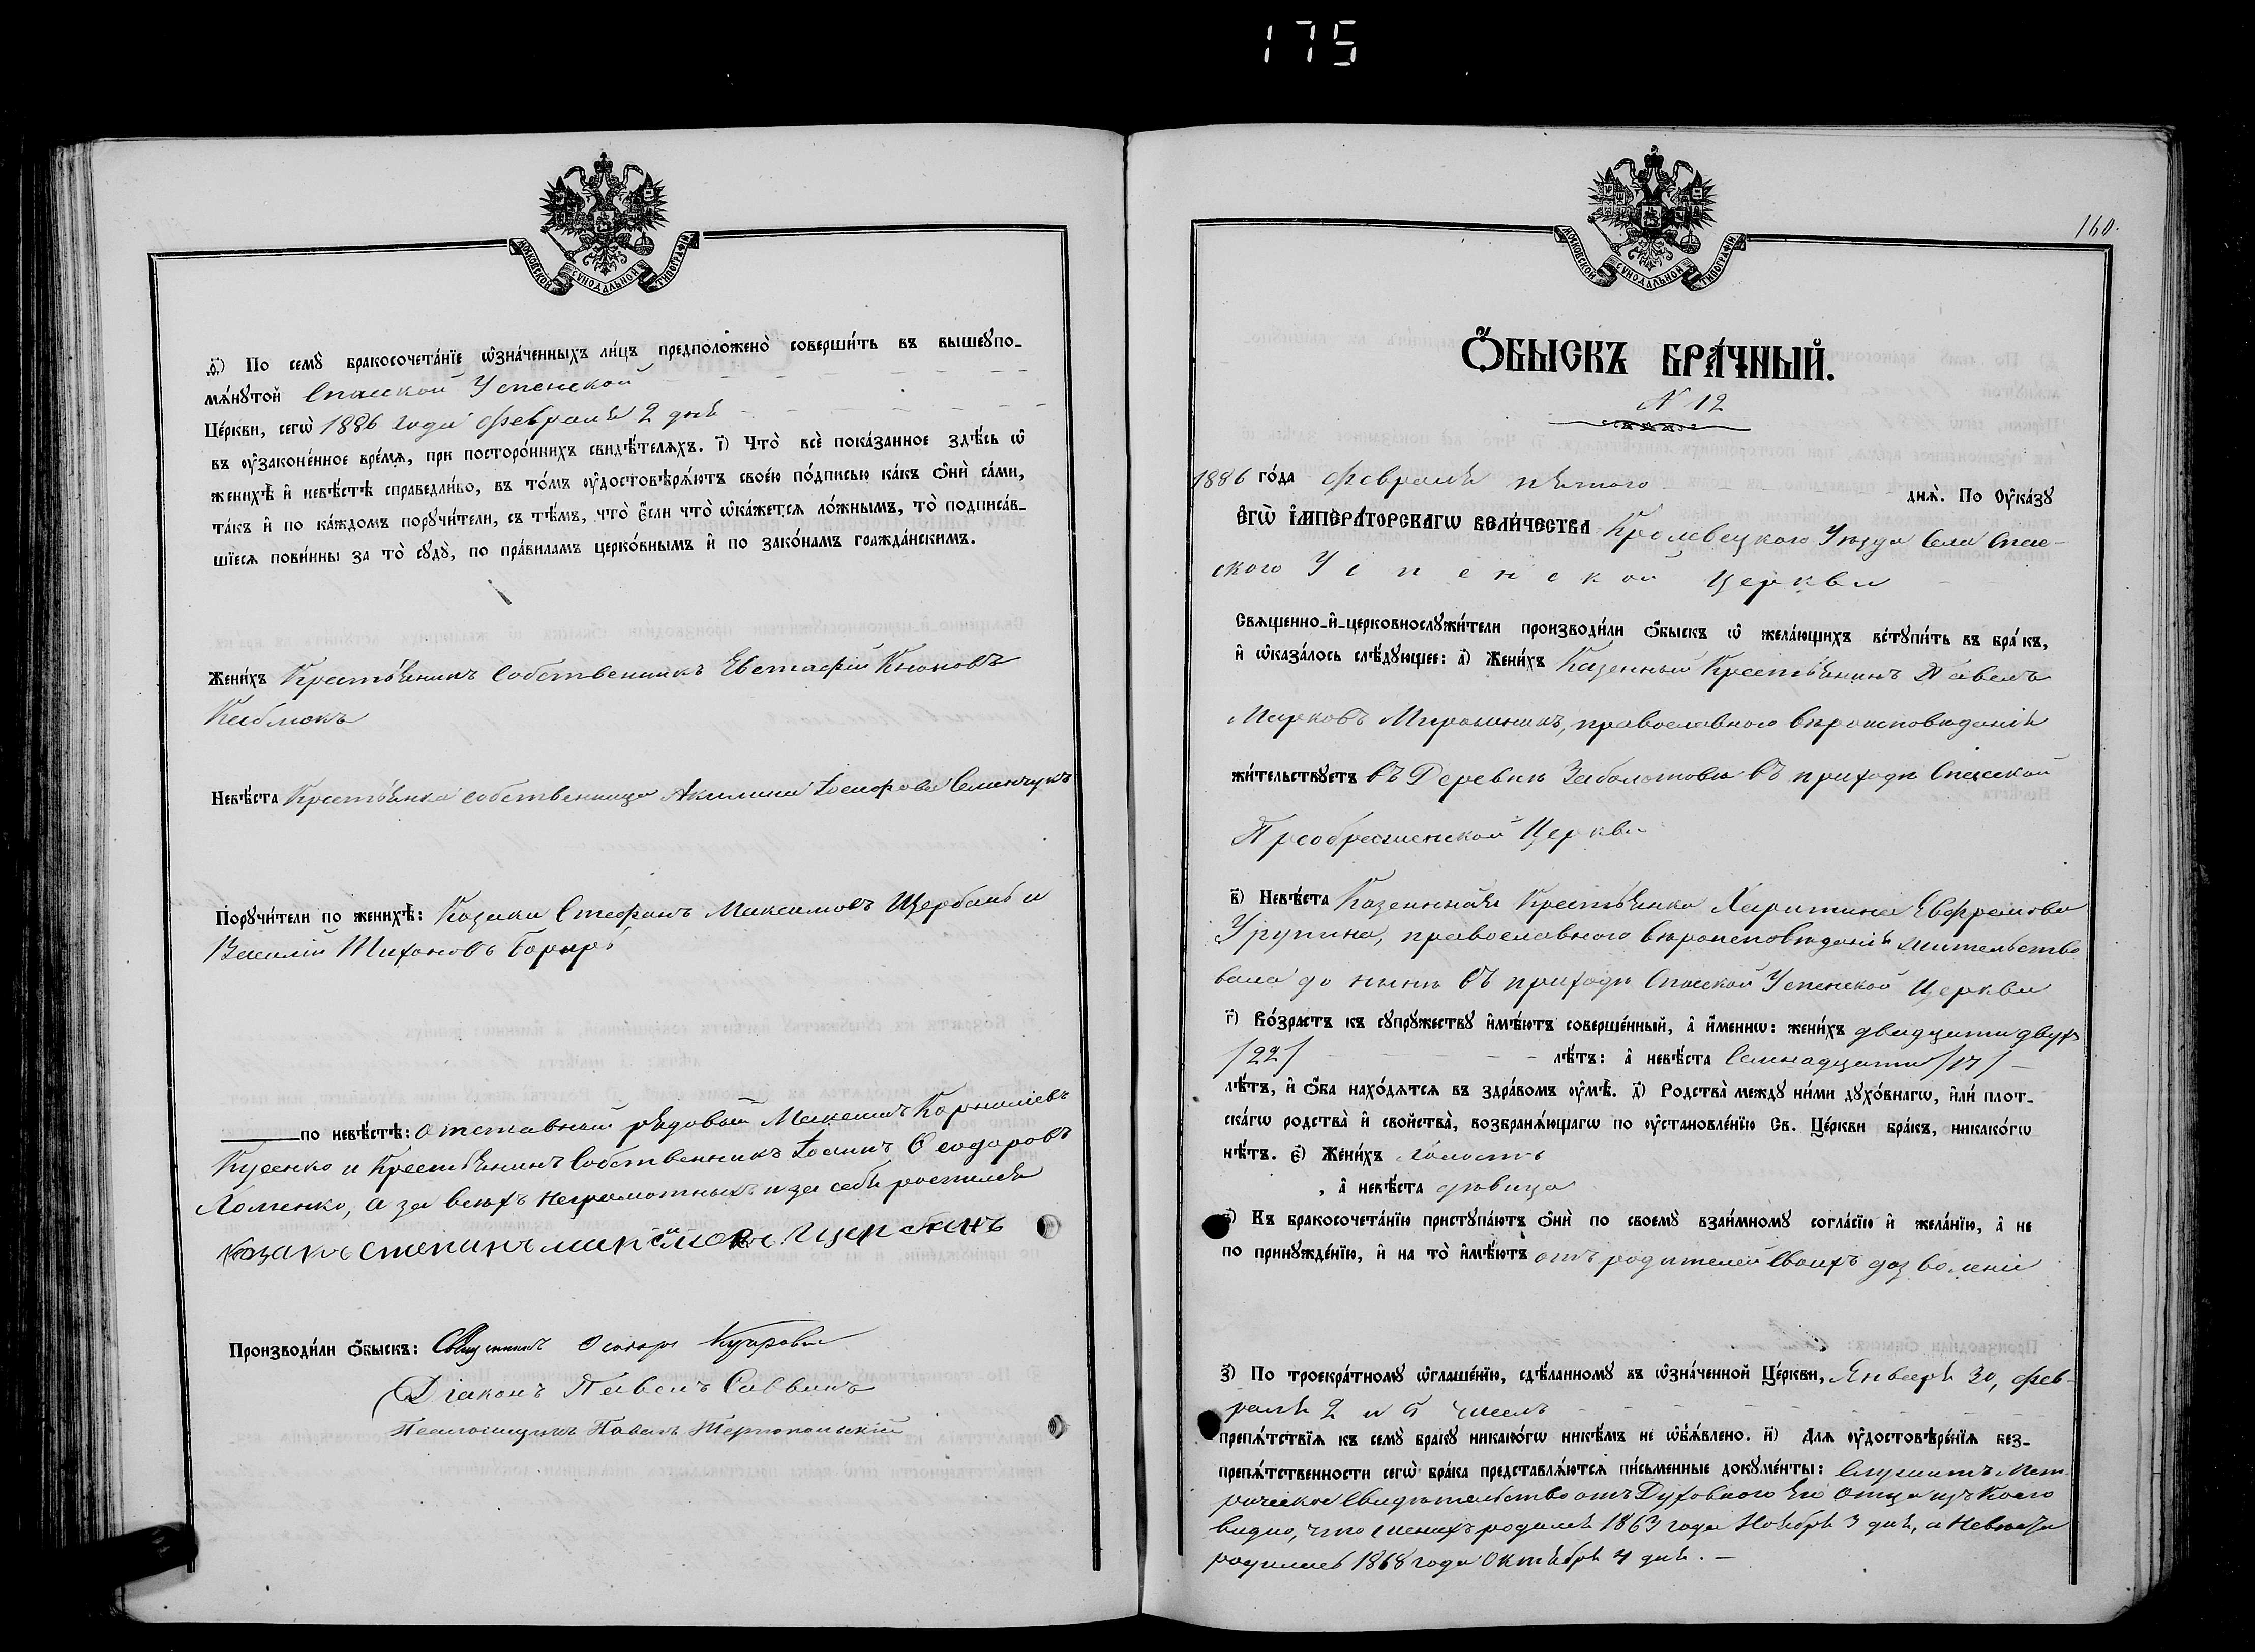 175
МОСКОВСКОЙ СѴНОДАЛЬНОЙ ТИПОГРАФІИ
д҃) По семꙋ̀ бракосочета́нїе ѡ҆зна́ченныхъ ли́цъ предположено̀ соверши́ть въ вышеꙋпо-
мѧ́нꙋтой Спасской Успенской
Це́ркви, сегѡ̀ 1886 года Февраля 2 дня
въ ᲂу҆законе́нное вре́мѧ, при посторо́ннихъ свидѣ́телѧхъ. і҃) Что̀ всѐ пока́занное здѣ́сь ѡ҆
женихѣ̀ и҆ невѣ́стѣ справедли́во, въ то́мъ ᲂу҆достовѣрѧ́ютъ свое́ю по́дписью ка́къ ѻ҆нѝ са́ми,
та́къ и҆ по ка́ждомъ порꙋчи́тели, съ тѣ́мъ, что̀ є҆́сли что̀ ѡ҆ка́жетсѧ ло́жнымъ, то̀ подписа́в-
шїесѧ пови́нны за то̀ сꙋдꙋ̀, по пра́виламъ церко́внымъ и҆ по зако́намъ гражда́нскимъ.
Жени́хъ Крестьянинъ Собственникъ Евстафій Кононовъ
Каблокъ
Невѣ́ста Крестьянка собственница Акилина Іосифова Семенчукъ
Порꙋчи́тели по женихѣ̀: Козаки Стефанъ Максимовъ Щербань и
Василій Тихоновъ
по невѣ́стѣ: Отставный рядовой Максимъ Корниліевъ
Куценко и Крестьянинъ Собственникъ Іоаннъ Ѳеодоровъ
Хоменко, а за всѣхъ неграмотныхъ и за себя росписался
козакъ степанъ максімовъ щербанъ
Производи́ли ѻ҆́быскъ: Священникъ Ѳеодоръ
Діаконъ Павелъ Саввичъ
Псаломщикъ Павелъ Тернопольскій
160.
МОСКОВСКОЙ СѴНОДАЛЬНОЙ ТИПОГРАФІИ
Ѻ҆́БЫСКЪ БРА́ЧНЫЙ.
N 12
1886 го́да Февраля пятого днѧ̀. По Оу҆ка́зꙋ
Є҆ГѠ̀ І҆МПЕРА́ТОРСКАГѠ ВЕЛИ́ЧЕСТВА Кролевецкого Уѣзда Села Спас-
ского Успенской Церкви
Свѧще́нно-и҆-церковнослꙋжи́тели производи́ли ѻ҆́быскъ ѡ҆ жела́ющихъ встꙋпи́ть въ бра́къ,
и҆ ѡ҆каза́лось слѣ́дꙋющее: а҃) Жени́хъ Казенный Крестьянинъ Павелъ
Марковъ Мирошникъ, православного вѣроисповѣданія
жи́тельствꙋетъ въ Деревнѣ Заболотовѣ въ приходѣ Спасской
Преображенской Церкви
в҃) Невѣ́ста Казенная Крестьянка Харитина Евфремова
Урупина, православного вѣроисповѣданія жительство
вала до нынѣ въ приходѣ Спасской Успенской Церкви
г҃) Во́зрастъ къ сꙋпрꙋ́жествꙋ и҆мѣ́ютъ соверше́нный, а҆ и҆́меннѡ: жени́хъ двадцати двухъ
/22/ лѣ́тъ: а҆ невѣ́ста Семнадцати /17/
лѣ́тъ, и҆ ѻ҆́ба нахо́дѧтсѧ въ здра́вомъ ᲂу҆мѣ̀. д҃) Родства̀ междꙋ ни́ми дꙋхо́внагѡ, и҆лѝ плот-
ска́гѡ родства̀ и҆ свойства̀, возбранѧ́ющагѡ по ᲂу҆становле́нїю Св. Це́ркви бра́къ, никако́гѡ
нѣ́тъ. є҃) Жени́хъ холостъ
, а҆ невѣ́ста дѣвица
ѕ҃) Къ бракосочета́нїю пристꙋпа́ютъ ѻ҆нѝ по своемꙋ̀ взаи́мномꙋ согла́сїю и҆ жела́нїю, а҆ не
по принꙋжде́нїю, и҆ на то̀ и҆мѣ́ютъ отъ родителей своихъ дозволеніе
з҃) По троекра́тномꙋ ѡ҆глаше́нїю, сдѣ́ланномꙋ въ ѡ҆зна́ченной Це́ркви, Января 30, Фев-
раля 2 и 5 числъ
препѧ́тствїѧ къ семꙋ̀ бра́кꙋ никако́гѡ никѣ́мъ не ѡ҆б̾ѧ́влено. и҃) Длѧ ᲂу҆достовѣре́нїѧ без-
препѧ́тственности сегѡ̀ бра́ка представлѧ́ютсѧ пи́сьменные докꙋме́нты: Служитъ Мет-
рическое Свидѣтельство отъ Духовного Его Отца изъ Коего
видно, что женихъ родился 1863 года Ноября 3 дня, а Невѣста
родилась 1868 года Октября 4 дня. –